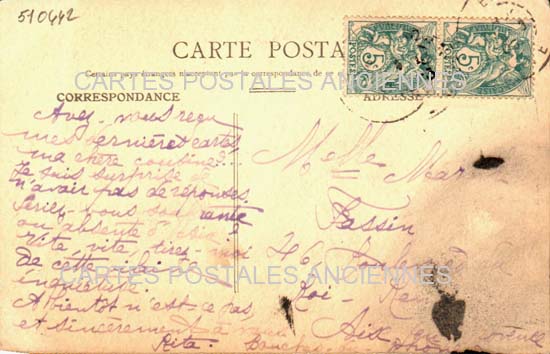 510442
CARTE POSTA
Certains pays étrangers n'acceptent pas la correspondance de
CORRESPONDANCE
ADRESSE
Avez-vous reçu
mes dernières cartes
ma chère cousine?
Je suis surprise de
n'avoir pas de réponses.
Seriez-vous souffrante
ou absente d'Aix?
Vite, vite, tirez-moi
de cette
inquiétude
A bientôt n'est-ce pas
et sincèrement à vous
Rita.
Melle Mar
Fassin
46
Roi-René
Aix en
Bouches du Rhône
5 POSTES
5 POSTES
CARTES POSTALES ANCIENNES
CARTES POSTALES ANCIENNES
CARTES POSTALES ANCIENNES